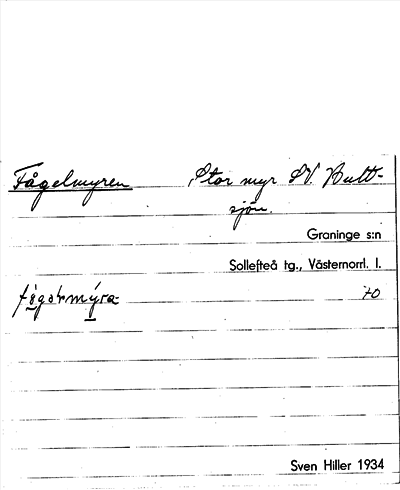 Fågelmyren Stor myr SV Hutt-
sjön.
Graninge s:n
Sollefteå tg., Västernorrl. l.
myra
Sven Hiller 1934